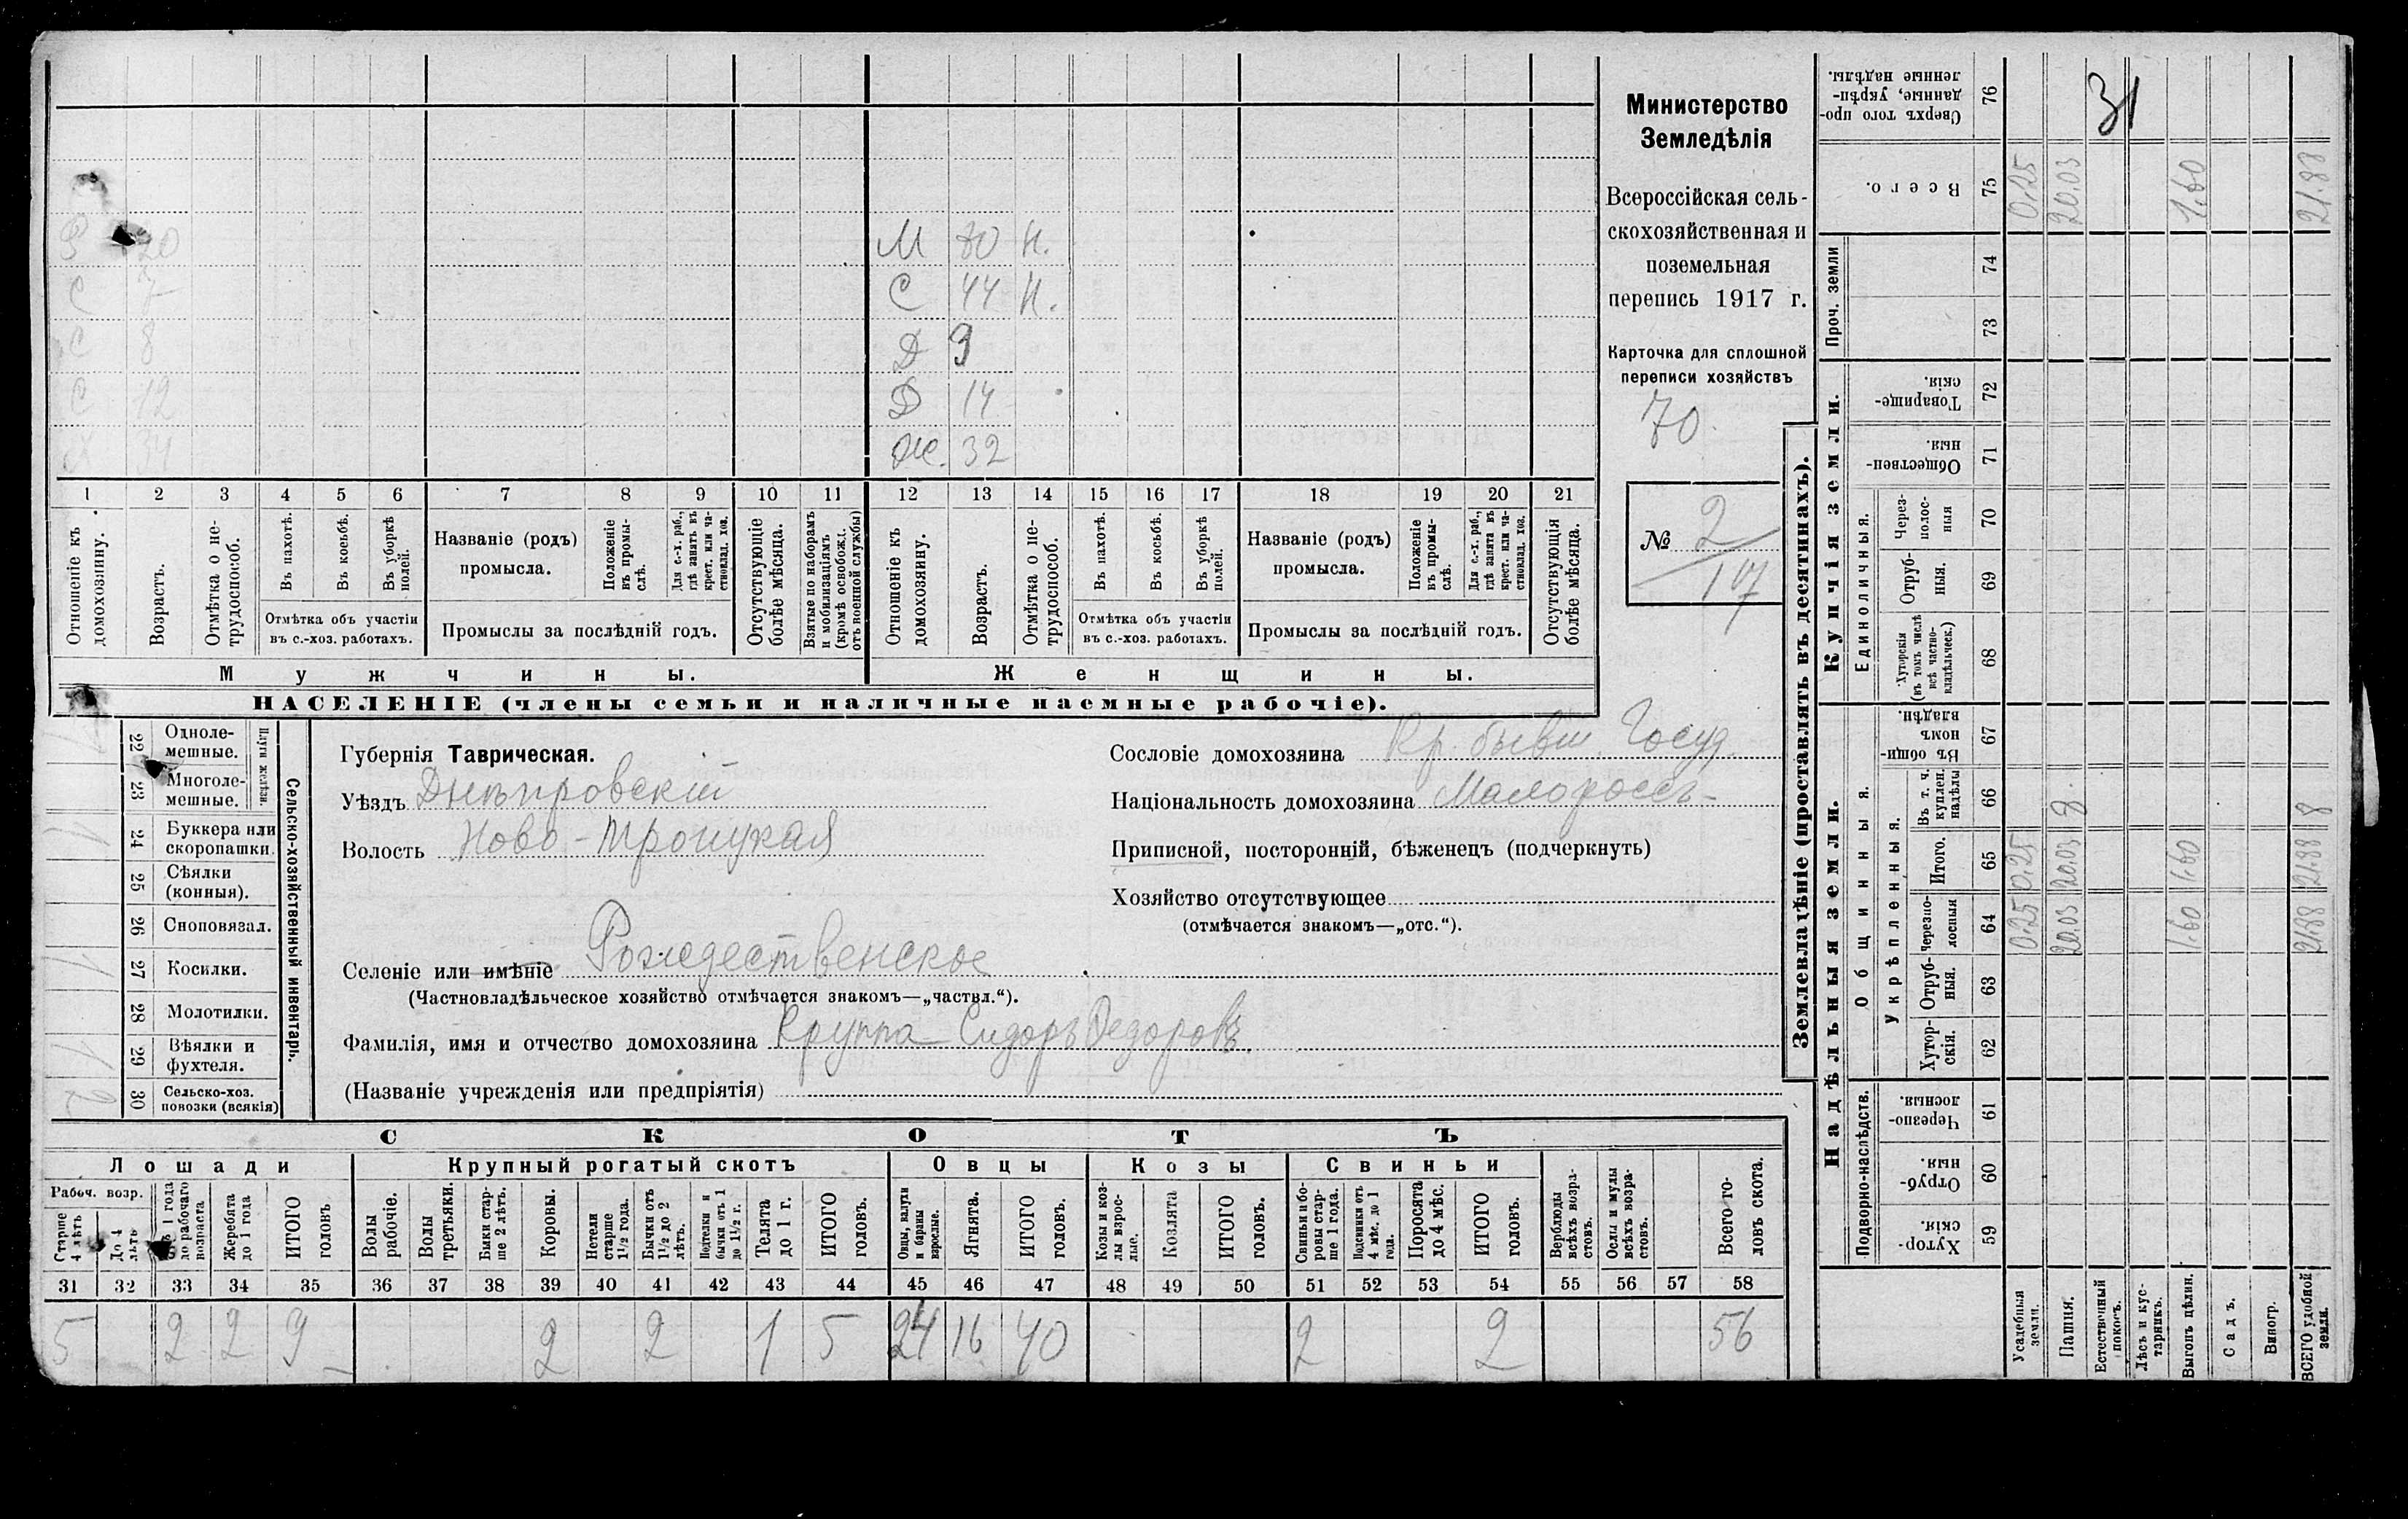 Министерство
Земледѣлія
Всероссійская сель-
скохозяйственная и
поземельная
перепись 1917 г.
Карточка для сплошной
переписи хозяйствъ
70.
№ 2
107
20 М 70 Н.
С 7 С 44 Н.
С 8 Д 9
С 12 Д 14
34 Ж. 32
1 2 3 4 5 6 7 8 9 10 11 12 13 14 15 16 17 18 19 20 21
Отношеніе къ домохозяину.
Возрастъ.
Отмѣтка о не-трудоспособ.
Въ пахотѣ.
Въ косьбѣ.
Въ уборкѣ полей.
Отмѣтка объ участіи
въ с.-хоз. работахъ.
Названіе (родъ)
промысла.
Положеніе въ промы-слѣ.
Для с.-х. раб., гдѣ занятъ въ крест. или ча-стновлад. хоз.
Промыслы за послѣдній годъ.
Отсутствующіе болѣе мѣсяца.
Взятые по наборамъ и мобилизаціямъ (кромѣ освобожд. отъ военной службы)
Отношеніе къ домохозяину.
Возрастъ.
Отмѣтка о не-трудоспособ.
Въ пахотѣ.
Въ косьбѣ.
Въ уборкѣ полей.
Отмѣтка объ участіи
въ с.-хоз. работахъ.
Названіе (родъ)
промысла.
Положеніе въ промы-слѣ.
Для с.-х. раб., гдѣ занята въ крест. или ча-стновлад. хоз.
Промыслы за послѣдній годъ.
Отсутствующія болѣе мѣсяца.
Мужчины.
Женщины.
НАСЕЛЕНІЕ (члены семьи и наличные наемные рабочіе).
Сельско-хозяйственный инвентарь.
Плуги желѣзн.
22 Одноле-мешные.
23 Многоле-мешные.
24 Буккера или скоропашки. 1
25 Сѣялки (конныя).
26 Сноповязал.
27 Косилки. 1
28 Молотилки.
29 Вѣялки и фухтеля. 1
30 Сельско-хоз. повозки (всякія) 2
Губернія Таврическая.
Уѣздъ Днѣпровскій
Волость Ново-Троицкая
Селеніе или имѣніе Рождественское
(Частновладѣльческое хозяйство отмѣчается знакомъ—„частвл.“).
Фамилія, имя и отчество домохозяина Круппа Сидоръ Федоровъ.
(Названіе учрежденія или предпріятія)
Сословіе домохозяина Кр. бывш. Госуд.
Національность домохозяина Малороссъ
Приписной, посторонній, бѣженецъ (подчеркнуть)
Хозяйство отсутствующее
(отмѣчается знакомъ—„отс.“).
СКОТЪ
Лошади Крупный рогатый скотъ Овцы Козы Свиньи
Рабоч. возр.
Старше 4 лѣтъ
До 4 лѣтъ
Съ 1 года до рабочаго возраста
Жеребята до 1 года
ИТОГО головъ
Волы рабочіе.
Волы третьяки.
Быки стар-ше 2 лѣтъ.
Коровы.
Нетели старше 1½ года.
Бычки отъ 1½ до 2 лѣтъ.
Подтелки и бычки отъ 1 до 1½ г.
Телята до 1 г.
ИТОГО головъ.
Овцы, валухи и бараны взрослые.
Ягнята.
ИТОГО головъ.
Козы и коз-лы взрос-лые.
Козлята
ИТОГО головъ.
Свиньи и бо-ровы стар-ше 1 года.
Подсвинки отъ 4 мѣс. до 1 года.
Поросята до 4 мѣс.
ИТОГО головъ.
Верблюды всѣхъ возра-стовъ.
Ослы и мулы всѣхъ возра-стовъ.
Всего го-ловъ скота.
31 32 33 34 35 36 37 38 39 40 41 42 43 44 45 46 47 48 49 50 51 52 53 54 55 56 57 58
5 2 2 9 2 2 1 5 24 16 40 2 2 56
Землевладѣніе (проставлять въ десятинахъ).
Надѣльныя земли.
Купчія земли.
Проч. земли
Подворно-наслѣдств.
Общинныя.
Укрѣпленныя.
Единоличныя.
Хутор-скія. 59
Отруб-ныя. 60
Черезпо-лосныя. 61
Хутор-скія. 62
Отруб-ныя. 63
Черезпо-лосныя 64
Итого. 65
Въ т. ч. куплен. надѣлы 66
Въ общин-номъ владѣн. 67
Хуторскія (въ томъ числѣ всѣ частно-владѣльческ.) 68
Отруб-ныя. 69
Черезполос-ныя 70
Обществен-ныя. 71
Товарище-скія. 72
73
74
Всего. 75
Сверхъ того про-данные, укрѣп-ленные надѣлы. 76
31
Усадебныя земли. 0.25 0.25 0.25
Пашня. 20.03 20.03 8. 20.03
Естественный покосъ.
Лѣсъ и кус-тарникъ.
Выгонъ цѣлин. 1.60 1.60 1.60
Садъ.
Виногр.
ВСЕГО удобной земли. 21.88 21.88 8 21.88